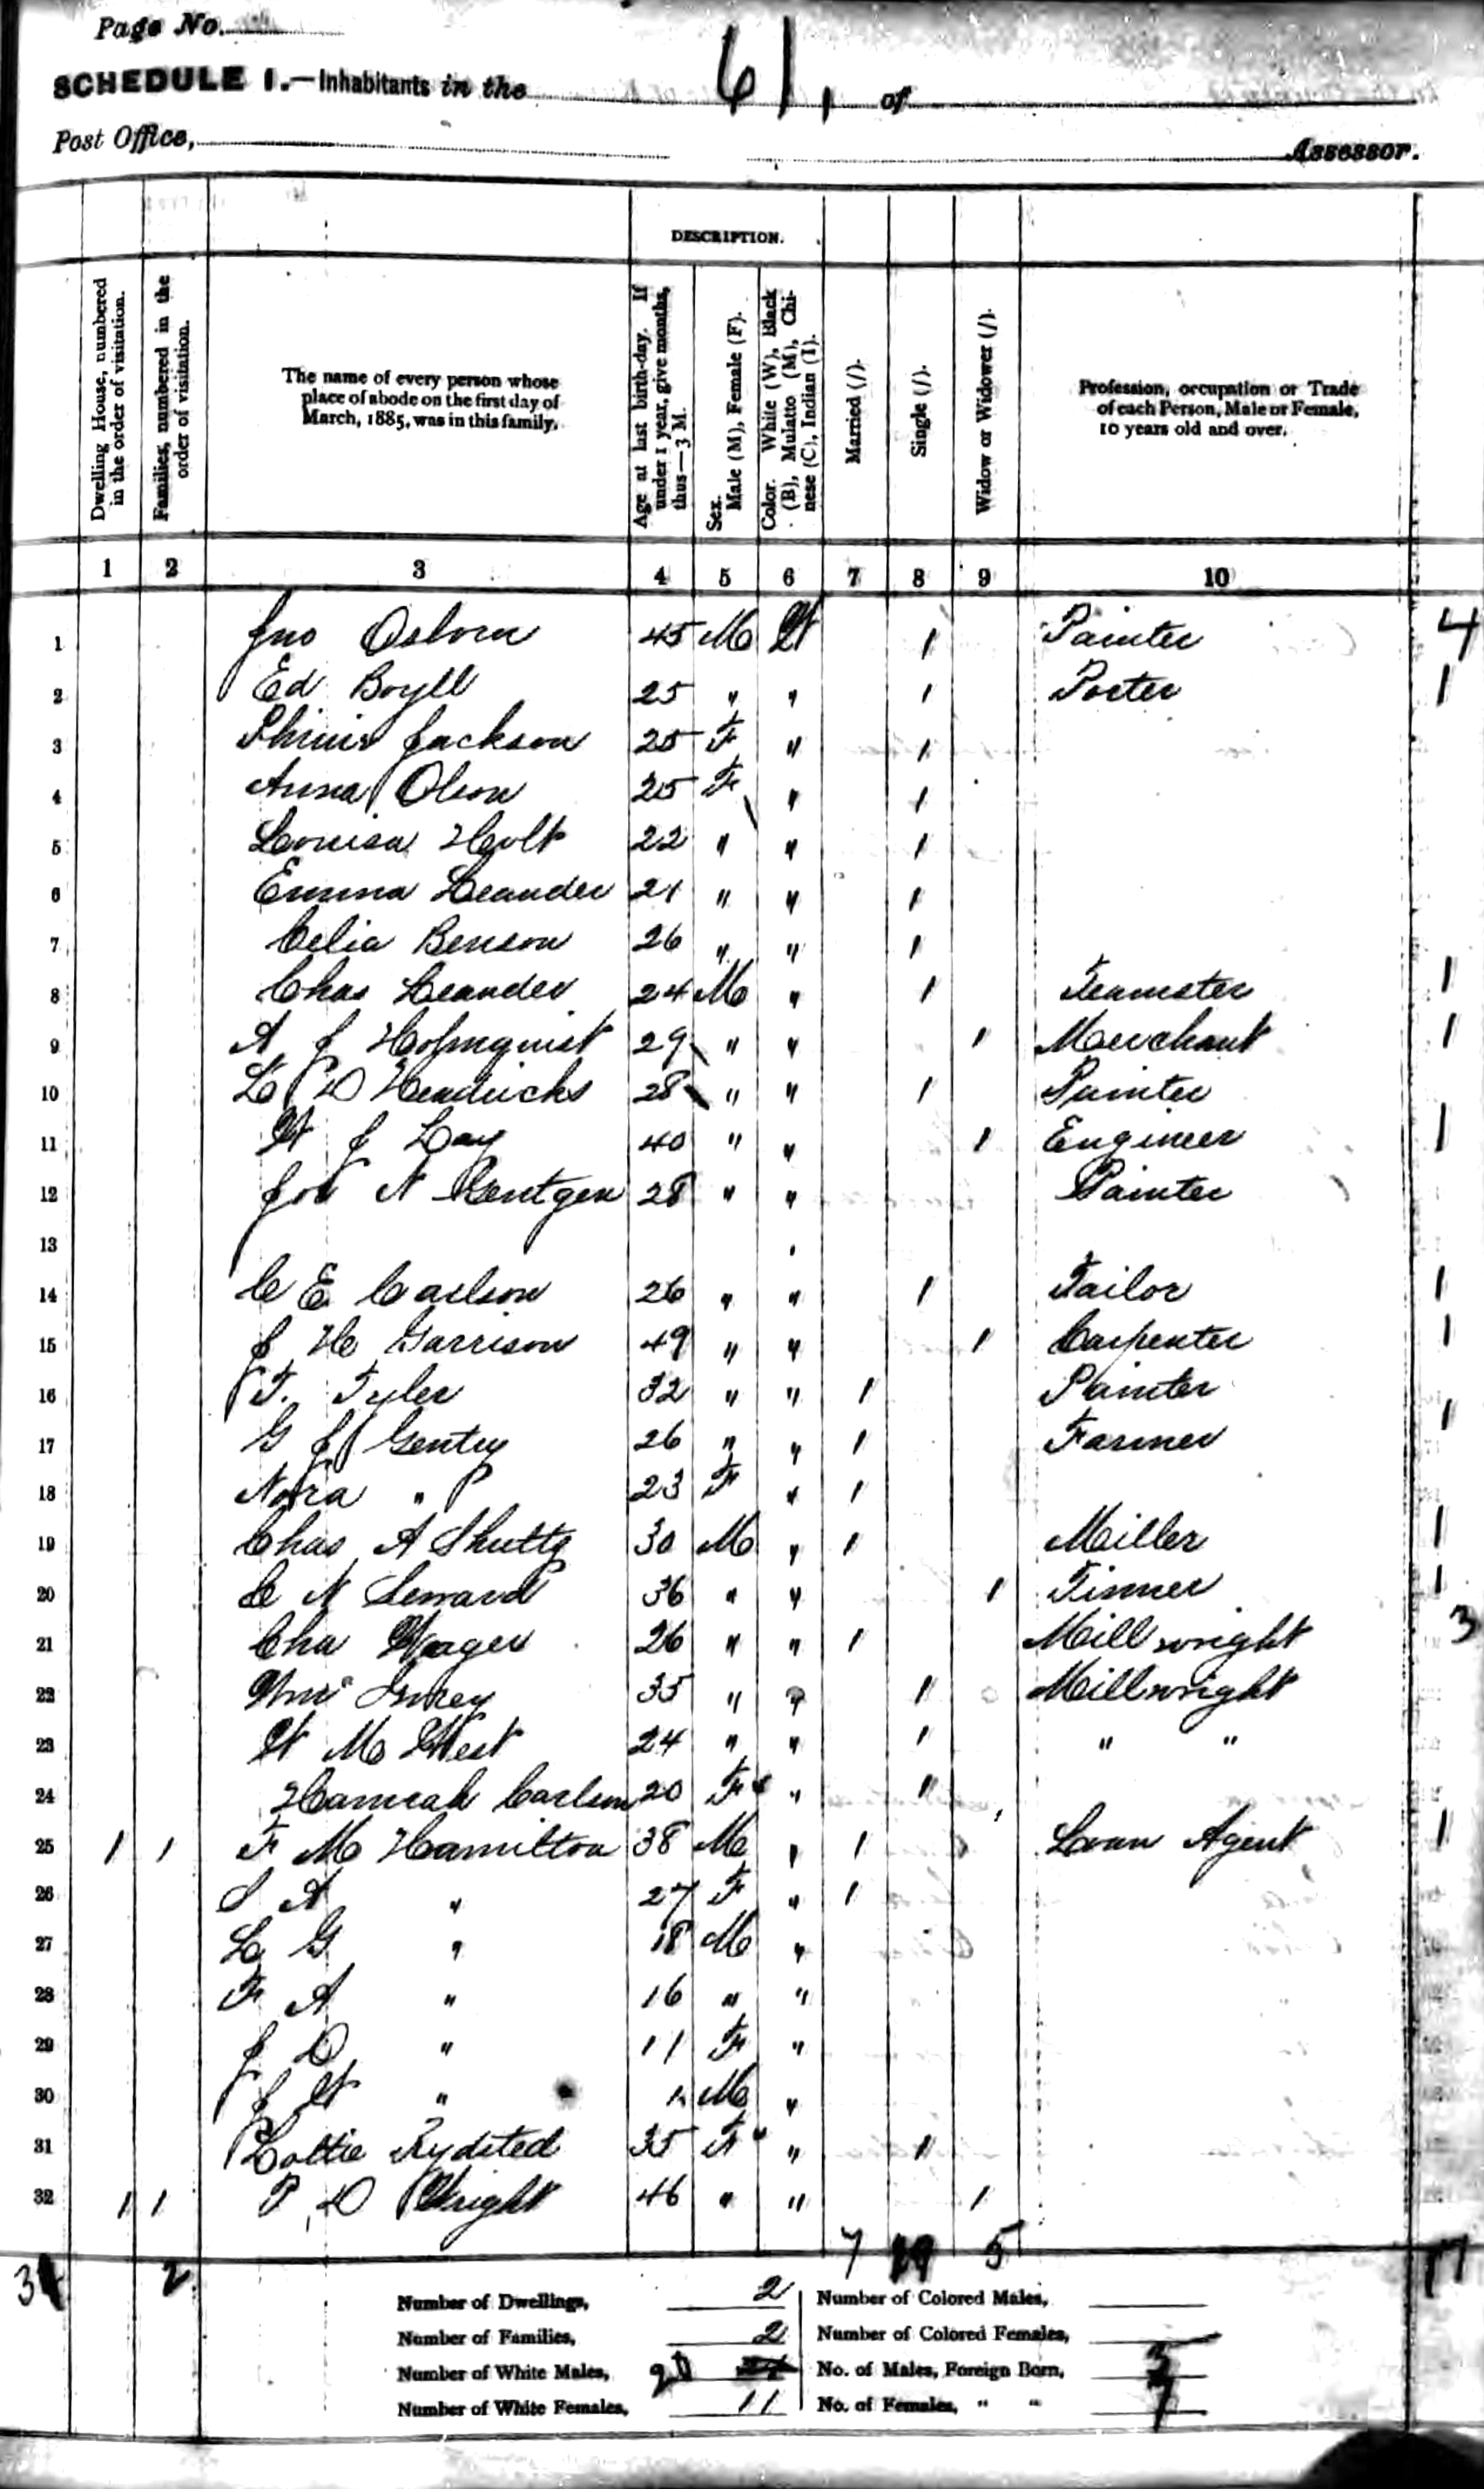 Page No.
61,
SCHEDULE 1.—Inhabitants in the of
Post Office, Assessor.
DESCRIPTION.
Dwelling House, numbered in the order of visitation.
Families, numbered in the order of visitation.
The name of every person whose place of abode on the first day of March, 1885, was in this family.
Age at last birth-day. If under 1 year, give months, thus—3 M.
Sex. Male (M), Female (F).
Color. White (W), Black (B), Mulatto (M), Chinese (C), Indian (I).
Married (/).
Single (/).
Widow or Widower (/).
Profession, occupation or Trade of each Person, Male or Female, 10 years old and over.
1 2 3 4 5 6 7 8 9 10
1 Jno Osborn 45 M W / Painter 4
2 Ed Boyll 25 " " / Porter 1
3 Jackson 25 F " /
4 Anna Olson 25 F " /
5 Louisa Holt 22 " " /
6 Emma Leander 21 " " /
7 Celia Benson 26 " " /
8 Chas Leander 24 M " / Teamster 1
9 A J Holmquist 29 " " / Merchant 1
10 L D Hendricks 28 " " / Painter
11 W J Lay 40 " " / Engineer 1
12 Jos N Gentgen 28 " " Painter
13
14 C E Carlson 26 " " / Tailor 1
15 J H Garrison 49 " " / Carpenter 1
16 T. Tyler 32 " " / Painter
17 G J Gentry 26 " " / Farmer 1
18 Nora " 23 F " /
19 Chas A Shutty 30 M " / Miller 1
20 C N 36 " " / Tinner 1
21 Cha Wager 26 " " / Mill wright 3
22 Wm 35 " " / Millwright
23 W M West 24 " " / " "
24 Hannah Carlson 20 F " /
25 1 1 F M Hamilton 38 M " / Loan Agent 1
26 S A " 27 F " /
27 L G " 18 M "
28 F A " 16 " "
29 J D " 11 F "
30 J W " M "
31 Lottie Rydsted 35 F " /
32 1 1 P D Wright 46 " " /
2 7 19 5 17
Number of Dwellings, 2 Number of Colored Males,
Number of Families, 2 Number of Colored Females,
Number of White Males, 20 No. of Males, Foreign Born, 3
Number of White Females, 11 No. of Females, " " 7